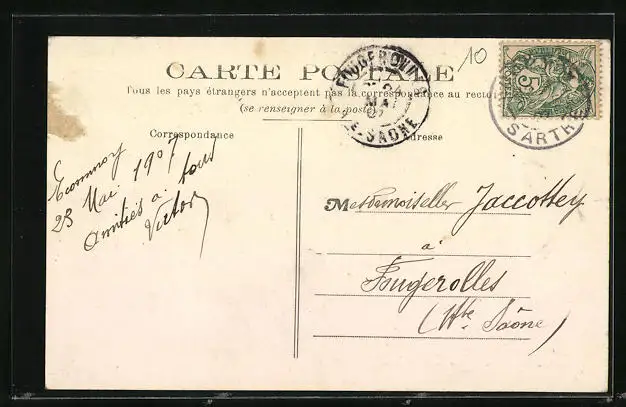 10
CARTE POSTALE
Tous les pays étrangers n'acceptent pas la correspondance au recto
(se renseigner à la poste)
Correspondance
Adresse
FOUGEROLLES
MAI
07
HTE-SAÔNE
SARTHE
5
Ecommoy
23 Mai 1907
Amitiés à tous
Victor
Mesdemoiselles Jaccottey
à
Fougerolles
(Hte Saône)